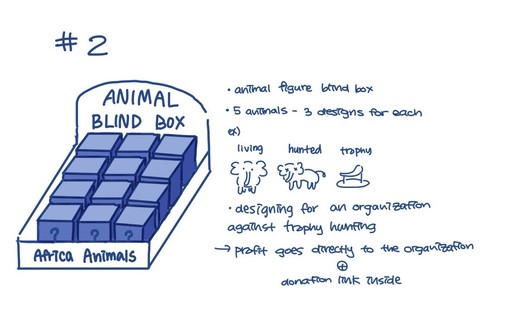 #2
ANIMAL
BLIND BOX
? ? ?
Africa Animals
• animal figure blind box
• 5 animals - 3 designs for each
ex)
living hunted trophy
• designing for an organization
against trophy hunting
→ profit goes directly to the organization
⊕
donation link inside